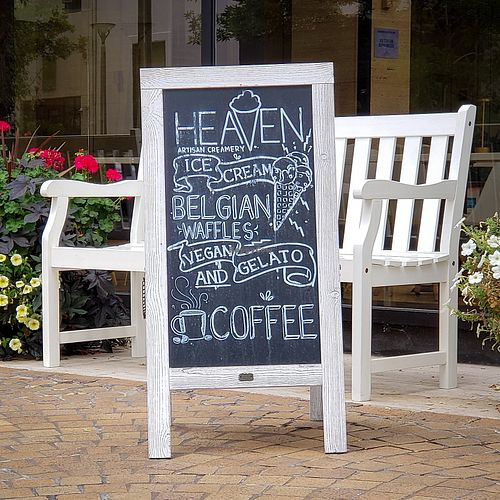 HEAVEN
ARTISAN CREAMERY
ICE CREAM
BELGIAN
WAFFLES
VEGAN
AND GELATO
COFFEE